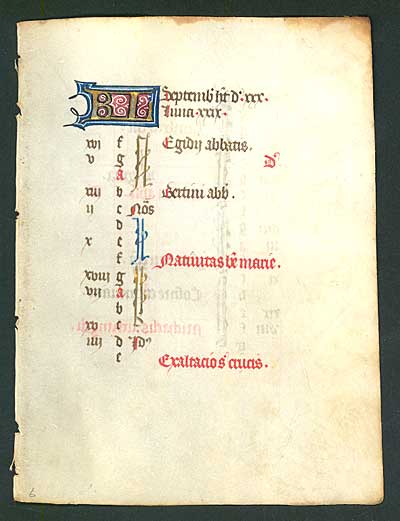 KL Septemb' ht d'. xxx.
Luna. xxix.
xvi f Egidij abbatis.
v g D'
a
xiii b Bertini abb.
ii c Nōs
d
x e
f Natiuitas be marie.
xviii g
vii a
b
xv c
iiii d Id'
e Exaltacio s crucis.
6